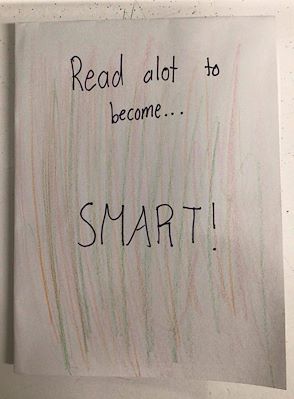 Read alot to
become...
SMART!